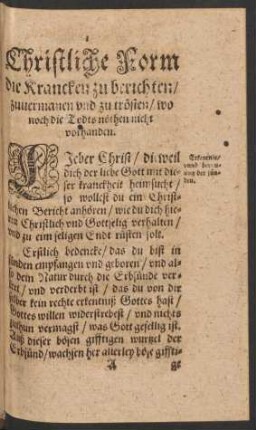 Christliche Form
die Krancken zu berichten/
zuuermanen vnd zu trösten/ wo
noch die Todts nöthen nicht
vorhanden.
LJeber Christ/ dieweil
dich der liebe Gott mit die-
ser kranckheit heimsucht/
so wollest du ein Christ-
lichen Bericht anhören/ wie du dich hie-
rin Christlich vnd Gottselig verhalten/
vnd zu eim seligen Ende rüsten solt.
Erkentnis
vnnd
der sün-
den.
Erstlich bedencke/ das du bist in
sünden empfangen vnd geboren/ vnd al-
so dem Natur durch die Erbsünde ver-
kert/ vnd verderbt ist/ das du von dir
selber kein rechte erkentnuß Gottes hast/
Gottes willen widerstrebest/ vnd nichts
zuthun vermagst/ was Gott gefellig ist.
Auß dieser bösen gifftigen wurtzel der
Erbsünd/ wachsen her allerley böse giffti-
A ge